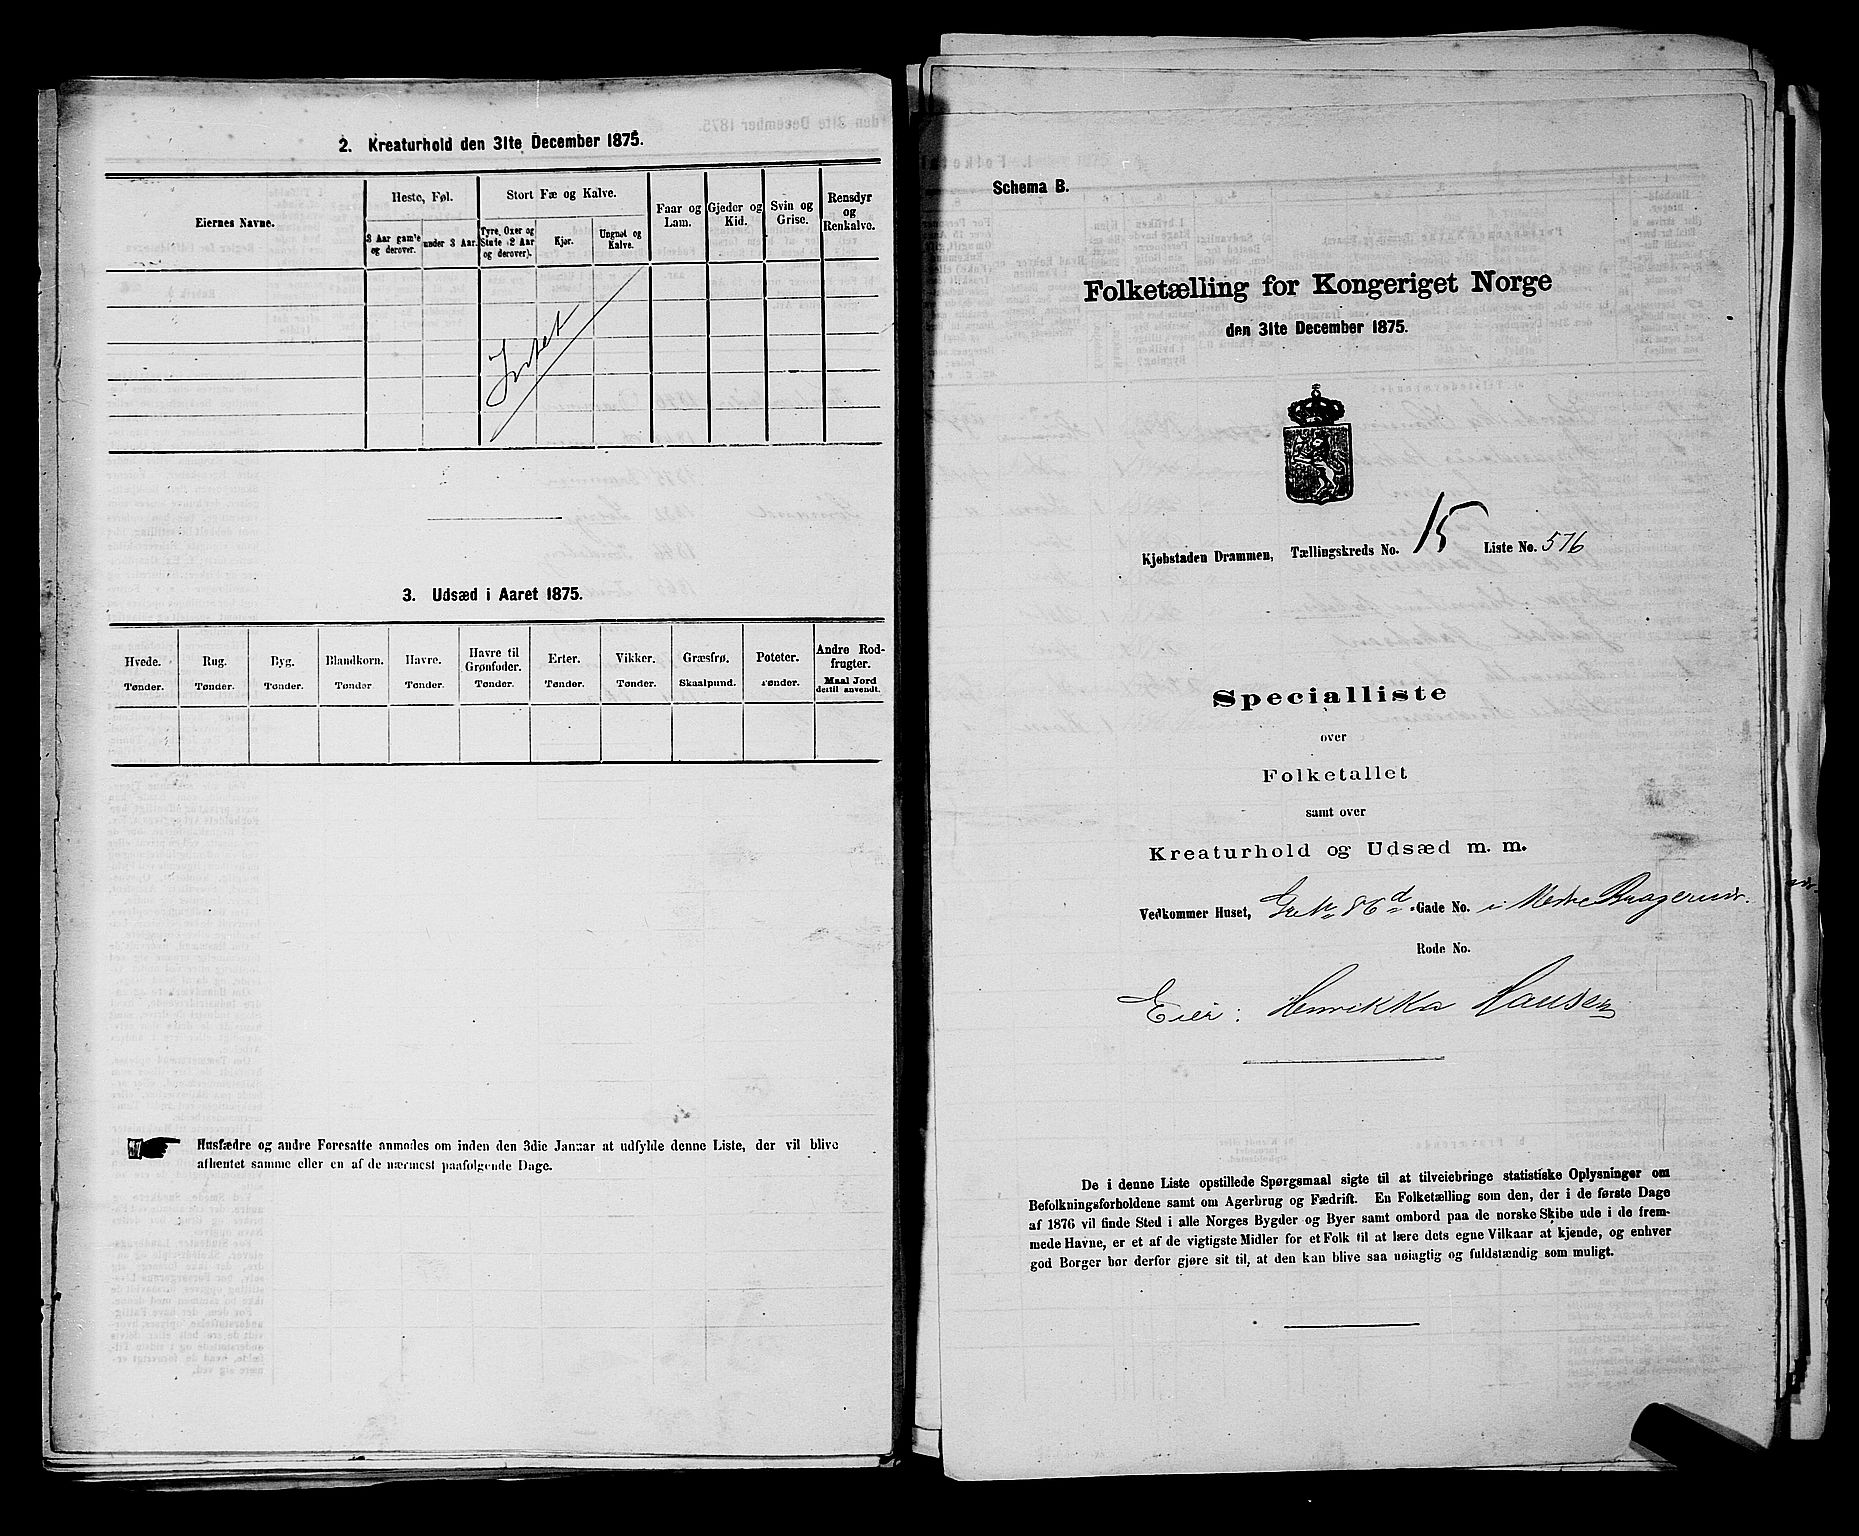 2. Kreaturhold den 31te December 1875.
Eiernes Navne.
Heste, Føl.
3 Aar gamle og derover.
under 3 Aar.
Stort Fæ og Kalve.
Tyre, Oxer og Stude (2 Aar og derover).
Kjør.
Ungnøt og Kalve.
Faar og Lam.
Gjeder og Kid.
Svin og Grise.
Rensdyr og Renkalve.
Intet
3. Udsæd i Aaret 1875.
Hvede. Rug. Byg. Blandkorn. Havre. Havre til Grønfoder. Erter. Vikker. Græsfrø. Poteter. Andre Rodfrugter.
Tønder. Tønder. Tønder. Tønder Tønder. Tønder. Tønder. Tønder. Skaalpund. Tønder. Maal Jord dertil anvendt.
Husfædre og andre Foresatte anmodes om inden den 3die Januar at udfylde denne Liste, der vil blive
afhentet samme eller en af de nærmest paafølgende Dage.
Schema B.
Folketælling for Kongeriget Norge
den 31te December 1875.
Kjøbstaden Drammen, Tællingskreds No. 15 Liste No. 576
Specialliste
over
Folketallet
samt over
Kreaturhold og Udsæd m. m.
Vedkommer Huset, Gr No 86 d. Gade No. i Nedre Bragernæs.
Rode No.
Eier: Henrikka Hansen
De i denne Liste opstillede Spørgsmaal sigte til at tilveiebringe statistiske Oplysninger om
Befolkningsforholdene samt om Agerbrug og Fædrift. En Folketælling som den, der i de første Dage
af 1876 vil finde Sted i alle Norges Bygder og Byer samt ombord paa de norske Skibe ude i de frem-
mede Havne, er et af de vigtigste Midler for et Folk til at lære dets egne Vilkaar at kjende, og enhver
god Borger bør derfor gjøre sit til, at den kan blive saa nøiagtig og fuldstændig som muligt.